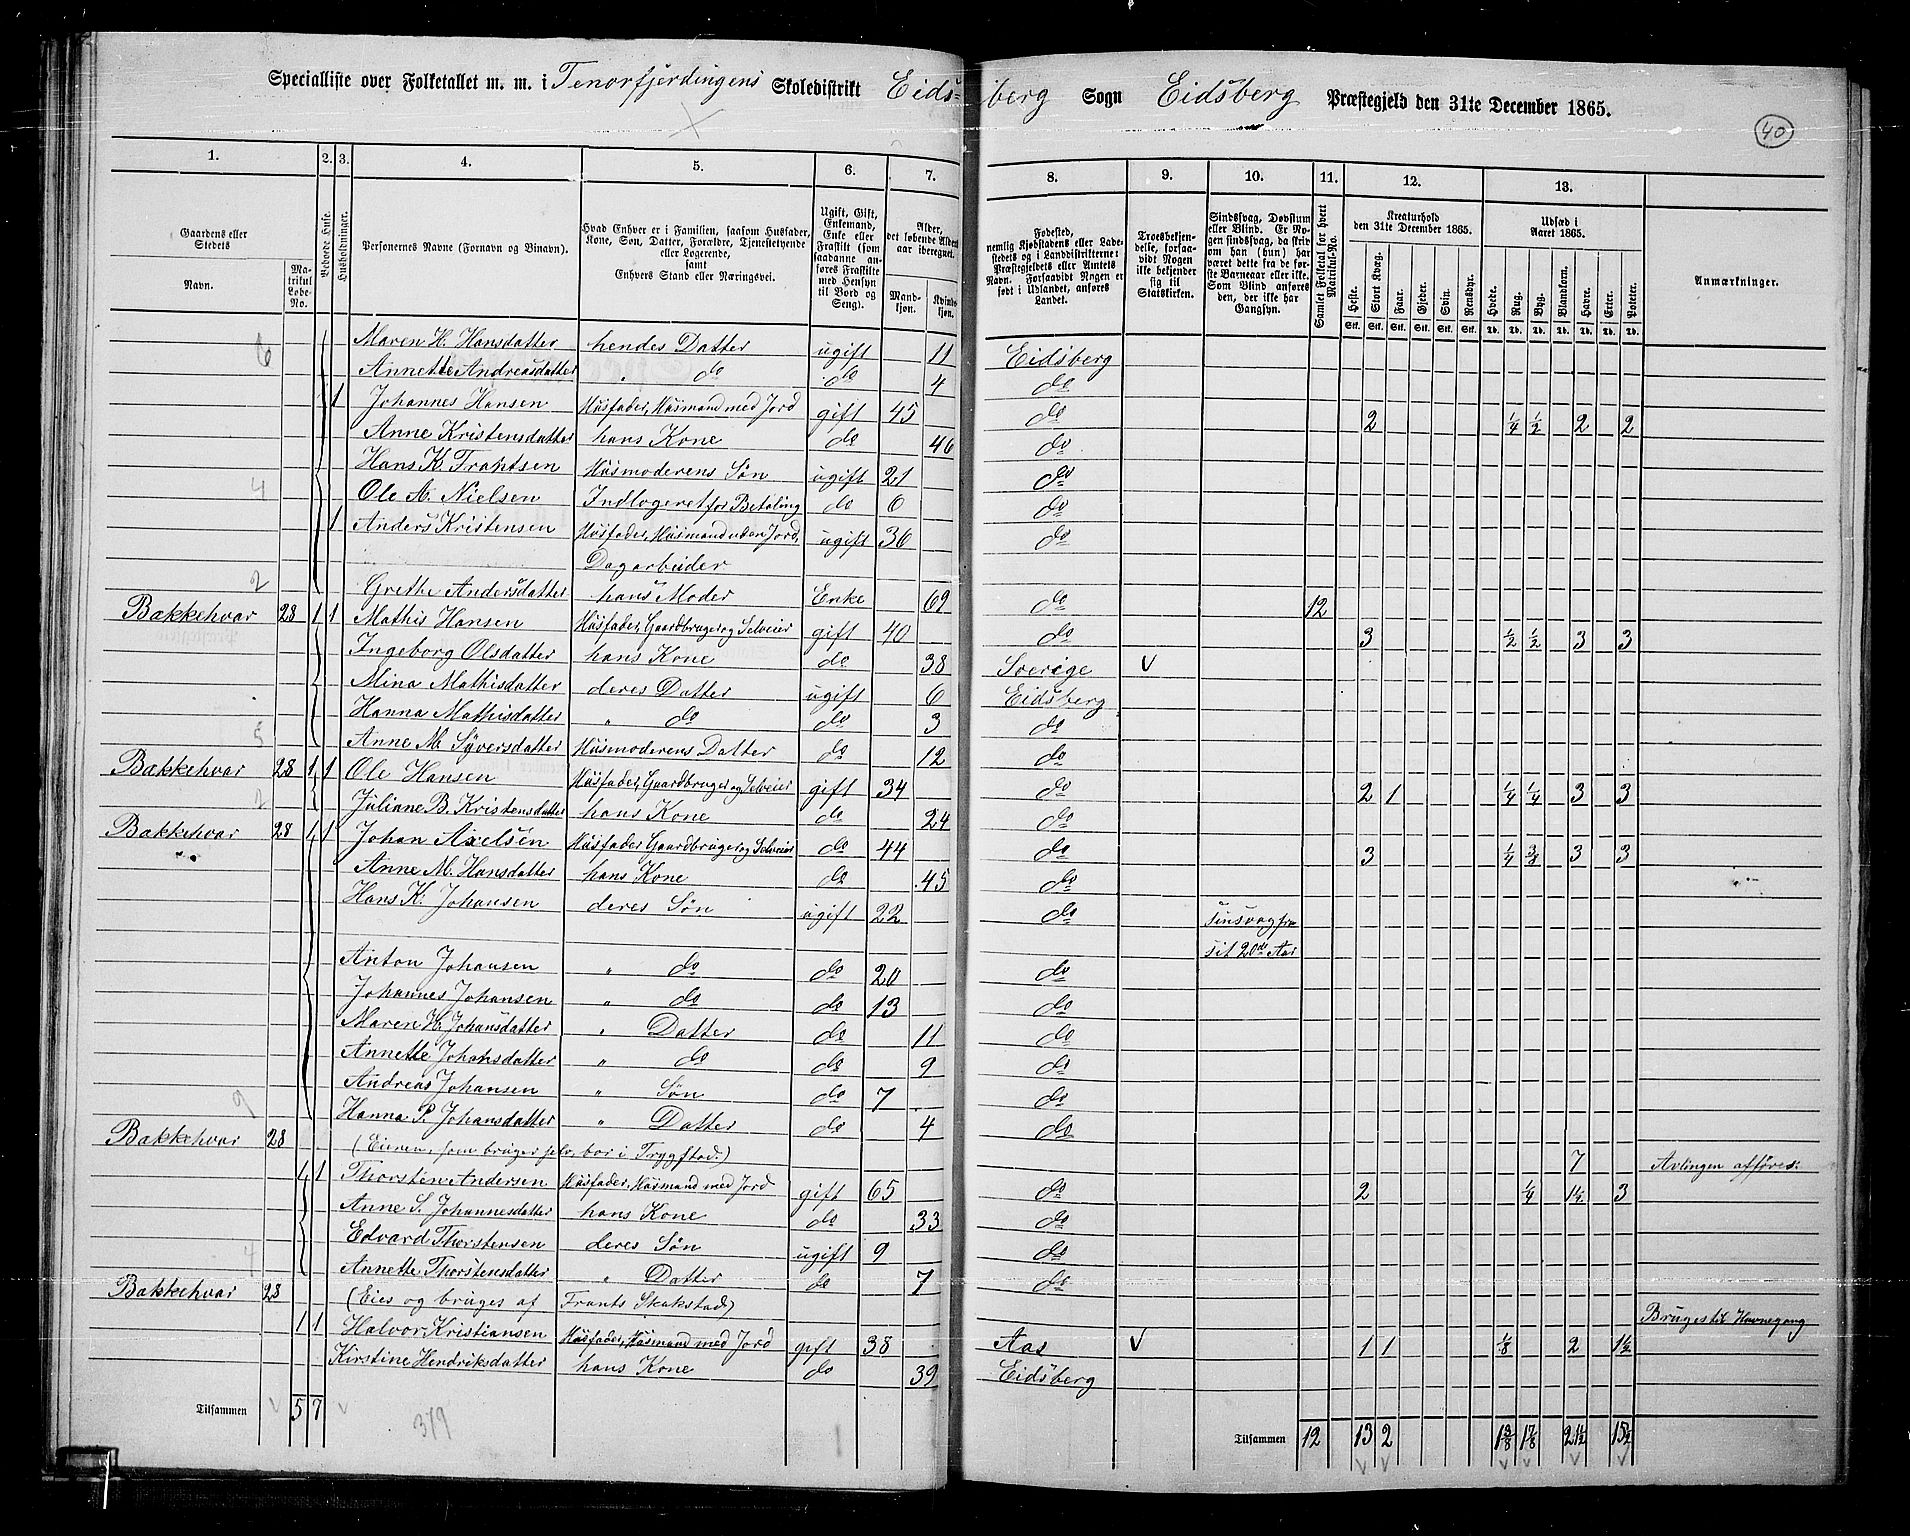 Specialliste over Folketallet m. m. i Tenorfjerdingens Skoledistrikt Eids- berg Sogn Eidsberg Præstegjeld den 31te December 1865.
40
1. 2. 3. 4. 5. 6. 7. 8. 9. 10. 11. 12. 13.
Gaardens eller Stedets
Navn.
Matrikul Løbe-No.
Beboede Huse.
Husholdninger.
Personernes Navne (Fornavn og Binavn).
Hvad Enhver er i Familien, saasom Husfader, Kone, Søn, Datter, Forældre, Tjenestetyende eller Logerende, samt Enhvers Stand eller Næringsvei.
Ugift, Gift, Enkemand, Enke eller Fraskilt (som saadanne anføres Fraskilte med Hensyn til Bord og Seng).
Alder, det løbende Aldersaar iberegnet.
Mandkjøn. Kvindekjøn.
Fødested, nemlig Kjøbstadens eller Ladestedets og i Landdistrikterne: Præstegjeldets eller Amtets Navn. Forsaavidt Nogen er født i Udlandet, anføres Landet.
Troesbekjendelse, forsaavidt Nogen ikke bekjender sig til Statskirken.
Sindssvag, Døvstum eller Blind. Er Nogen sindssvag, da skrives om han (hun) har været dette fra de første Barneaar eller ikke. Som Blind anføres den, der ikke har Gangsyn.
Samlet Folketal for hvert Matrikul-No.
Kreaturhold den 31te December 1865.
Heste. Stort Kvæg. Faar. Gjeder. Svin. Rensdyr.
Udsæd i Aaret 1865.
Hvede. Rug. Byg. Blandkorn. Havre. Erter. Poteter.
Anmærkninger.
6 Maren H. Hansdatter hendes Datter ugift 11 Eidsberg
Annette Andreasdatter " do do 4 do
1 Johannes Hansen Husfader, Husmand med Jord gift 45 do 2 1/4 1/2 2 2
Anne Kristensdatter hans Kone do 46 do
Hans K. Frantsen Husmoderens Søn ugift 21 do
4 Ole A. Nielsen Indlogeret for Betaling do 6 do
1 Anders Kristensen Husfader, Husmand uden Jord, ugift 36 do
Dagarbeider
2 Grethe Andersdatter hans Moder Enke 69 do 12
Bakkehvar 28 1 1 Mathis Hansen Husfader, Gaardbruger og Selveier gift 40 do 3 1/2 1/2 3 3
Ingeborg Olsdatter hans Kone do 38 Sverige V
Mina Mathisdatter deres Datter ugift 6 Eidsberg
Hanna Mathisdatter " do do 3 do
5 Anne M. Syversdatter Husmoderens Datter do 12 do
Bakkehvar 28 1 1 Ole Hansen Husfader, Gaardbruger og Selveier gift 34 do 2 1 1/4 1/4 3 3
2 Juliane B. Kristensdatter hans Kone do 24 do
Bakkehvar 28 1 1 Johan Axelsen Husfader Gaardbruger og Selveier do 44 do 3 1/4 3/8 3 3
Anne M. Hansdatter hans Kone do 45 do
Hans K. Johansen deres Søn ugift 22 do Sinsvag fra
sit 20de Aar
Anton Johansen " do do 20 do
Johannes Johansen " do do 13 do
Maren H. Johansdatter " Datter do 11 do
Annette Johansdatter " do do 9 do
Andreas Johansen " Søn do 7 do
9 Hanna P. Johansdatter " Datter do 4 do
Bakkehvar 28 (Eieren, som bruger selv, bor i Trygstad.) 7 Avlingen afføres.
1 1 Thorsten Andersen Husfader, Husmand med Jord gift 65 do 2 1/4 1 1/2 3
Anne S. Johannesdatter hans Kone do 33 do
Edvard Thorstensen deres Søn ugift 9 do
4 Annette Thorstensdatter " Datter do 7 do
Bakkehvar 28 (Eies og bruges af Frants Skakstad) Bruges til Havnegang
1 1 Halvor Kristiansen Husfader, Husmand med Jord gift 38 Aas V 1 1 1/8 2 1 1/2
Kirstine Hendriksdatter hans Kone do 39 Eidsberg
Tilsammen V 5 7 V 379 Tilsammen 12 13 2 1 3/8 1 7/8 21 1/2 15 1/2
V V V V V V